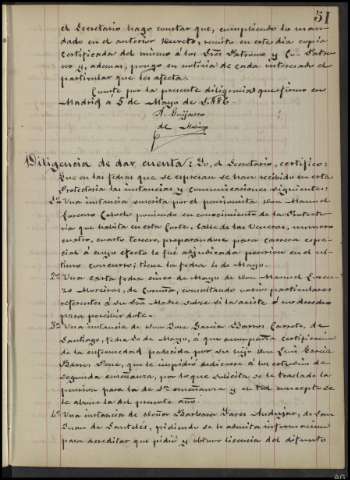 51
el Secretario hago constar que, cumpliendo lo man-
dado en el anterior decreto, remito en este dia copia
certificada del mismo á los Sres Patrono y Co-Patro-
no y, ademas, pongo en noticia de cada interesado el
particular que les afecta.
Conste por la presente diligencia que firmo en
Madrid á 5 de Mayo de 1886
de
Diligencia de dar cuenta: Yo, el Secretario, certifico:
Que en las fechas que se expresan se han recibido en esta
Protectoría las instancias y comunicaciones siguientes:
1ª Una instancia suscrita por el pensionista Don Manuel
Lorenzo poniendo en conocimiento de la Protecto-
ria que habita en esta Corte, calle de las Veneras, número
cuatro, cuarto tercero, preparandose para carrera espe-
cial á cuyo efecto le fué adjudicada pension en el úl-
timo concurso; tiene la fecha 4 de Mayo.
2ª Una carta fecha cinco de Mayo de Don Manuel
de consultando varios particulares
referentes á su Sra Madre sobre si la asiste ó no derecho
para percibir dote.
3ª Una instancia de Don José García Barros de
Santiago, fecha de Mayo, á que acompaña certificacion
de la enfermedad padecida por su hijo Don Luis García
Barros que le impidió dedicarse á los estudios de
segunda enseñanza, por lo que solicita se le traslade la
pension para la de 1ª enseñanza y el
le abone la del presente año.
4ª Una instancia de Doña Barbara Pares Andujar, de San
Juan de pidiendo se le admita informacion
para acreditar que pidió y obtuvo licencia del difunto